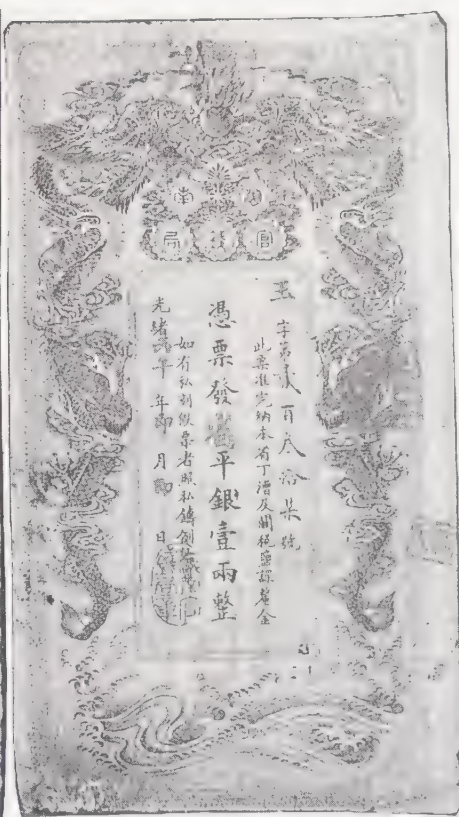 湖南
官錢局
玉字第貳百叁拾柒號
此票准完納本省丁漕及關稅鹽課釐金
憑票發平銀壹兩整
如有私刻假票者照私鑄例
光緒年月日